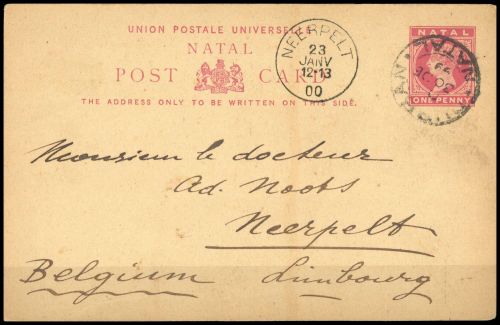 UNION POSTALE UNIVERSELLE
NATAL
POST CARD
THE ADDRESS ONLY TO BE WRITTEN ON THIS SIDE.
NEERPELT
23
JANV
12-13
00
NATAL
ONE PENNY
NATAL
Monsieur le docteur
Ad. Noots
Neerpelt
Belgium Limbourg